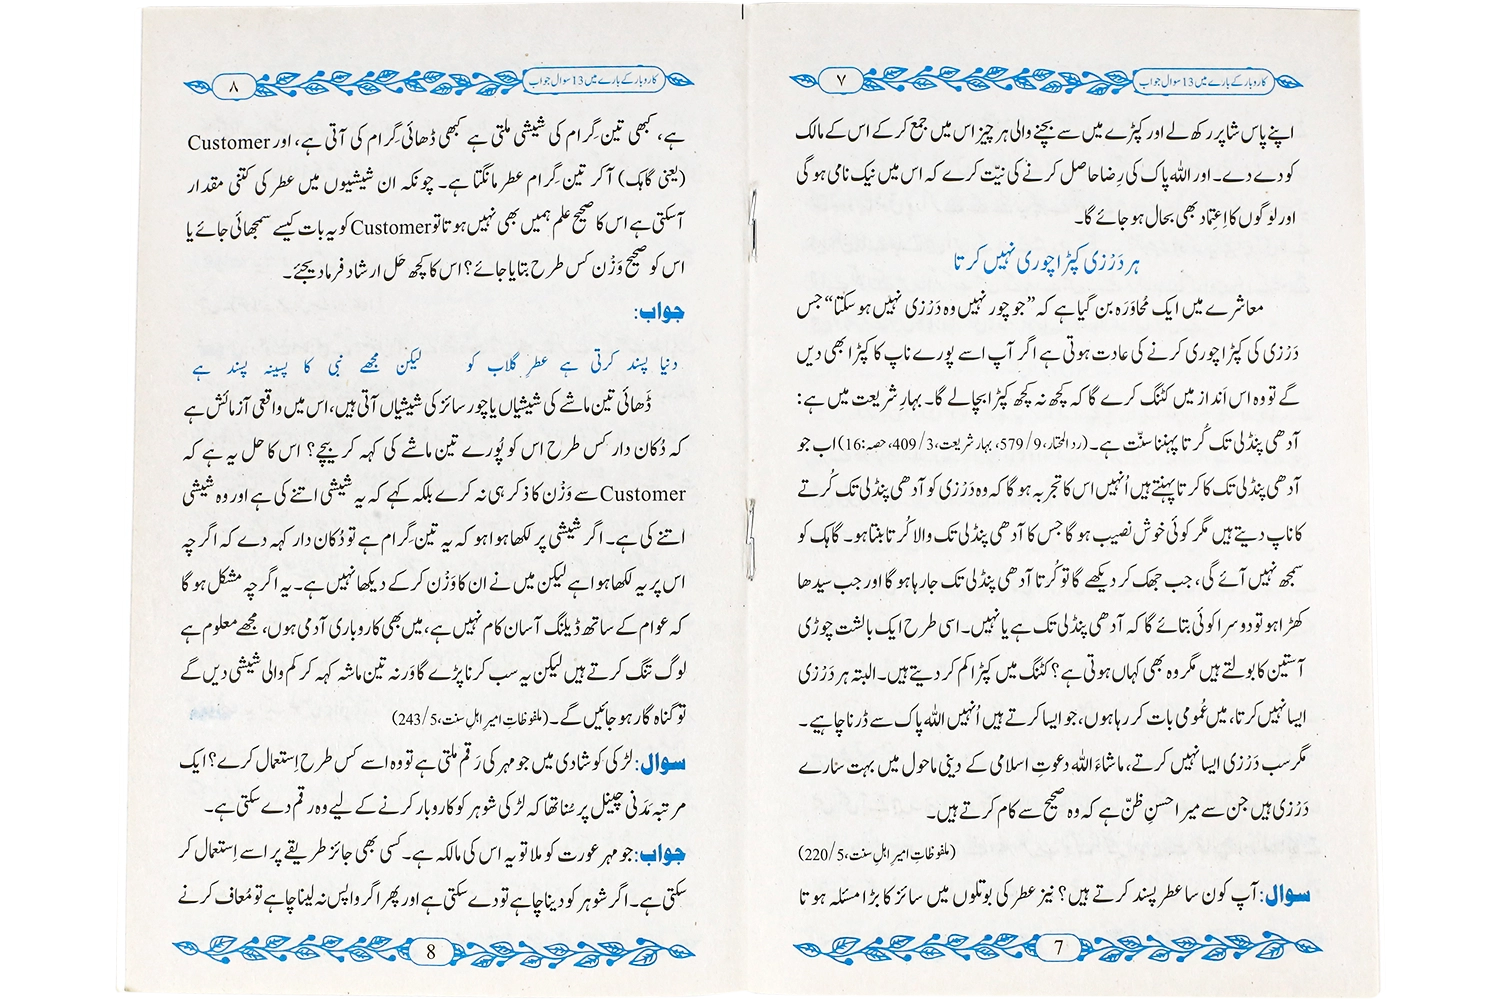 کاروبار کے بارے میں 13 سوال جواب
۷
اپنے پاس شاپر رکھ لے اور کپڑے میں سے بچنے والی ہر چیز اس میں جمع کر کے اس کے مالک
کو دے دے۔ اور اللہ پاک کی رِضا حاصل کرنے کی نیّت کرے کہ اس میں نیک نامی ہو گی
اور لوگوں کا اِعتِماد بھی بحال ہو جائے گا۔
ہر دَرْزی کپڑا چوری نہیں کرتا
معاشرے میں ایک مُحاوَرَہ بن گیا ہے کہ ”جو چور نہیں وہ دَرْزی نہیں ہو سکتا“ جس
دَرْزی کی کپڑا چوری کرنے کی عادت ہوتی ہے اگر آپ اسے پورے ناپ کا کپڑا بھی دیں
گے تو وہ اس اَنداز میں کٹنگ کرے گا کہ کچھ نہ کچھ کپڑا بچالے گا۔ بہارِ شریعت میں ہے:
آدھی پنڈلی تک کُرتا پہننا سنّت ہے۔ (رد المحتار، 9/579، بہار شریعت، 3/409، حصہ:16) اب جو
آدھی پنڈلی تک کا کرتا پہنتے ہیں اُنہیں اس کا تجربہ ہو گا کہ وہ دَرْزی کو آدھی پنڈلی تک کُرتے
کا ناپ دیتے ہیں مگر کوئی خوش نصیب ہو گا جس کا آدھی پنڈلی تک والا کُرتا بنتا ہو۔ گاہک کو
سمجھ نہیں آئے گی، جب جھک کر دیکھے گا تو کُرتا آدھی پنڈلی تک جا رہا ہو گا اور جب سیدھا
کھڑا ہو تو دوسرا کوئی بتائے گا کہ آدھی پنڈلی تک ہے یا نہیں۔ اسی طرح ایک بالشت چوڑی
آستین کا بولتے ہیں مگر وہ بھی کہاں ہوتی ہے؟ کٹنگ میں کپڑا کم کر دیتے ہیں۔ البتہ ہر دَرْزی
ایسا نہیں کرتا، میں عُمومی بات کر رہا ہوں، جو ایسا کرتے ہیں اُنہیں اللہ پاک سے ڈرنا چاہیے۔
مگر سب دَرْزی ایسا نہیں کرتے، ماشاءَ اللہ دعوتِ اسلامی کے دینی ماحول میں بہت سارے
دَرْزی ہیں جن سے میرا حسنِ ظنّ ہے کہ وہ صحیح سے کام کرتے ہیں۔
(ملفوظاتِ امیرِ اہلِ سنت، 5/220)
سوال: آپ کون سا عطر پسند کرتے ہیں؟ نیز عطر کی بوتلوں میں سائز کا بڑا مسئلہ ہوتا
7
کاروبار کے بارے میں 13 سوال جواب
۸
ہے، کبھی تین گِرام کی شیشی ملتی ہے کبھی ڈھائی گِرام کی آتی ہے، اور Customer
(یعنی گاہک) آکر تین گِرام عطر مانگتا ہے۔ چونکہ ان شیشیوں میں عطر کی کتنی مقدار
آسکتی ہے اس کا صحیح علم ہمیں بھی نہیں ہوتا تو Customer کو یہ بات کیسے سمجھائی جائے یا
اس کو صحیح وَزْن کس طرح بتایا جائے؟ اس کا کچھ حَل ارشاد فرما دیجئے۔
جواب:
دنیا پسند کرتی ہے عطرِ گلاب کو لیکن مجھے نبی کا پسینہ پسند ہے
ڈھائی تین ماشے کی شیشیاں یا چور سائز کی شیشیاں آتی ہیں، اس میں واقعی آزمائش ہے
کہ دُکان دار کِس طرح اس کو پُورے تین ماشے کی کہہ کر بیچے؟ اس کا حل یہ ہے کہ
Customer سے وَزْن کا ذکر ہی نہ کرے بلکہ کہے کہ یہ شیشی اتنے کی ہے اور وہ شیشی
اتنے کی ہے۔ اگر شیشی پر لکھا ہوا ہو کہ یہ تین گِرام ہے تو دُکان دار کہہ دے کہ اگرچہ
اس پر یہ لکھا ہوا ہے لیکن میں نے ان کا وَزْن کر کے دیکھا نہیں ہے۔ یہ اگرچہ مشکل ہو گا
کہ عوام کے ساتھ ڈیلنگ آسان کام نہیں ہے، میں بھی کاروباری آدمی ہوں، مجھے معلوم ہے
لوگ تَنگ کرتے ہیں لیکن یہ سب کرنا پڑے گا وَرنہ تین ماشہ کہہ کر کم والی شیشی دیں گے
تو گناہ گار ہو جائیں گے۔ (ملفوظاتِ امیرِ اہلِ سنت، 5/243)
سوال: لڑکی کو شادی میں جو مہر کی رَقم ملتی ہے تو وہ اسے کس طرح اِستعمال کرے؟ ایک
مرتبہ مَدَنی چینل پر سُنا تھا کہ لڑکی شوہر کو کاروبار کرنے کے لیے وہ رقم دے سکتی ہے۔
جواب: جو مہر عورت کو ملا تو یہ اس کی مالکہ ہے۔ کسی بھی جائز طریقے پر اسے اِستعمال کر
سکتی ہے۔ اگر شوہر کو دینا چاہے تو دے سکتی ہے اور پھر اگر واپس نہ لینا چاہے تو مُعاف کرنے
8